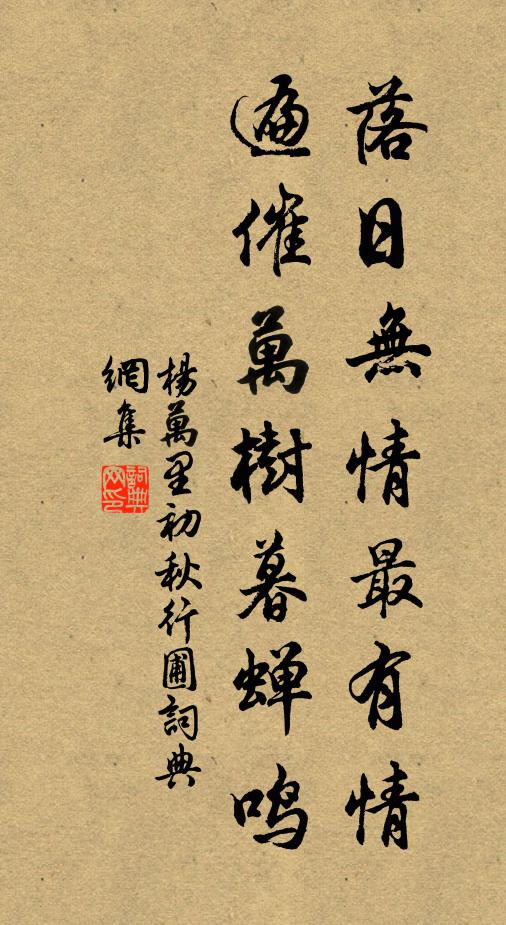 落日無情最有情
遍催萬樹暮蟬鳴
楊萬里初秋行圃詞典
網集
詞典網印